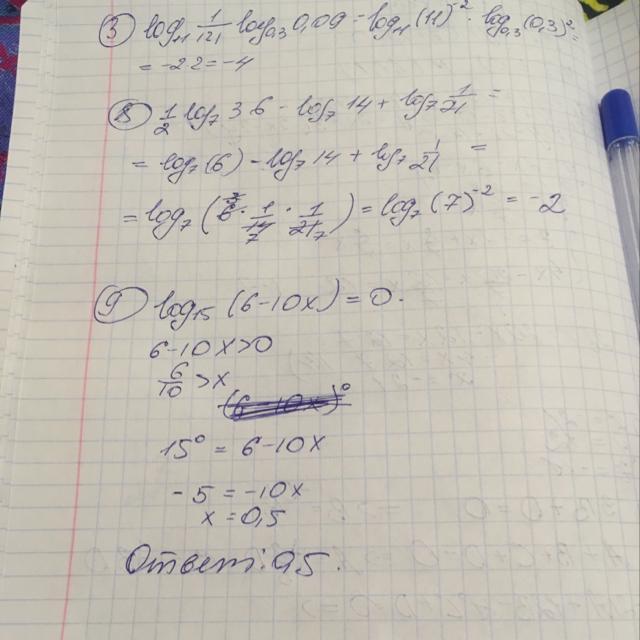 ③ log₁₁ 1/121 · log₀,₃ 0,09 = log₁₁ (11)⁻² · log₀,₃ (0,3)² =
= -2·2 = -4
⑧ 1/2 log₇ 36 - log₇ 14 + log₇ 1/21 =
= log₇ (6) - log₇ 14 + log₇ 1/21 =
= log₇ (6 · 1/14 · 1/21) = log₇ (7)⁻² = -2
⑨ log₁₅ (6-10x) = 0.
6-10x>0
6/10 >x
15⁰ = 6-10x
-5 = -10x
x = 0,5
Ответ: 0,5.